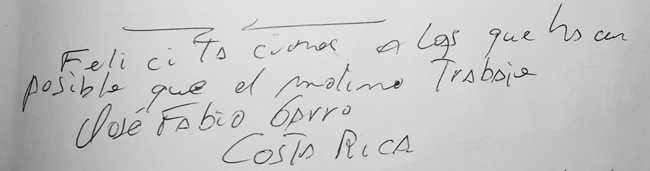 Felicitaciones a los que hacen
posible que el molino Trabaje
José Fabio Garro
COSTA RICA